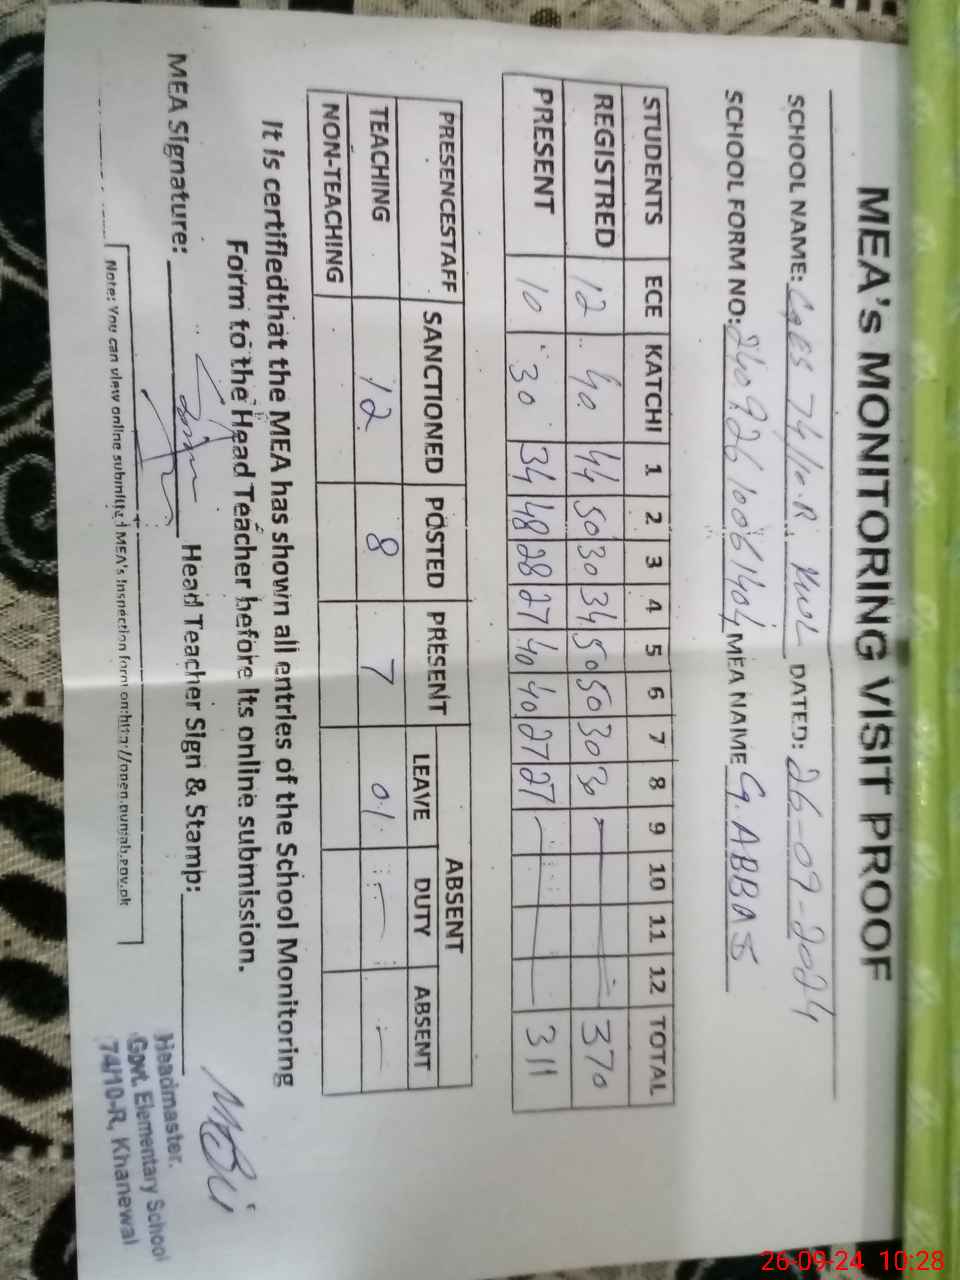 MEA's MONITORING VISIT PROOF
SCHOOL NAME: GES 74/10-R KWL DATED: 26-09-2024
SCHOOL FORM NO: 24092610061404 MEA NAME G. ABBAS
STUDENTS ECE KATCHI 1 2 3 4 5 6 7 8 9 10 11 12 TOTAL
REGISTRED 12 40 44 50 30 34 50 50 30 30 370
PRESENT 10 30 34 48 28 27 40 40 27 27 311
PRESENCESTAFF SANCTIONED POSTED PRESENT ABSENT
LEAVE DUTY ABSENT
TEACHING 12 8 7 01 - -
NON-TEACHING
It is certifiedthat the MEA has shown all entries of the School Monitoring
Form to the Head Teacher before its online submission.
MEA Signature: Head Teacher Sign & Stamp:
Headmaster.
Govt. Elementary School
74/10-R, Khanewal
Note: You can view online submitted MEA's Inspection form on:http://open.punjab.gov.pk
26-09-24 10:28